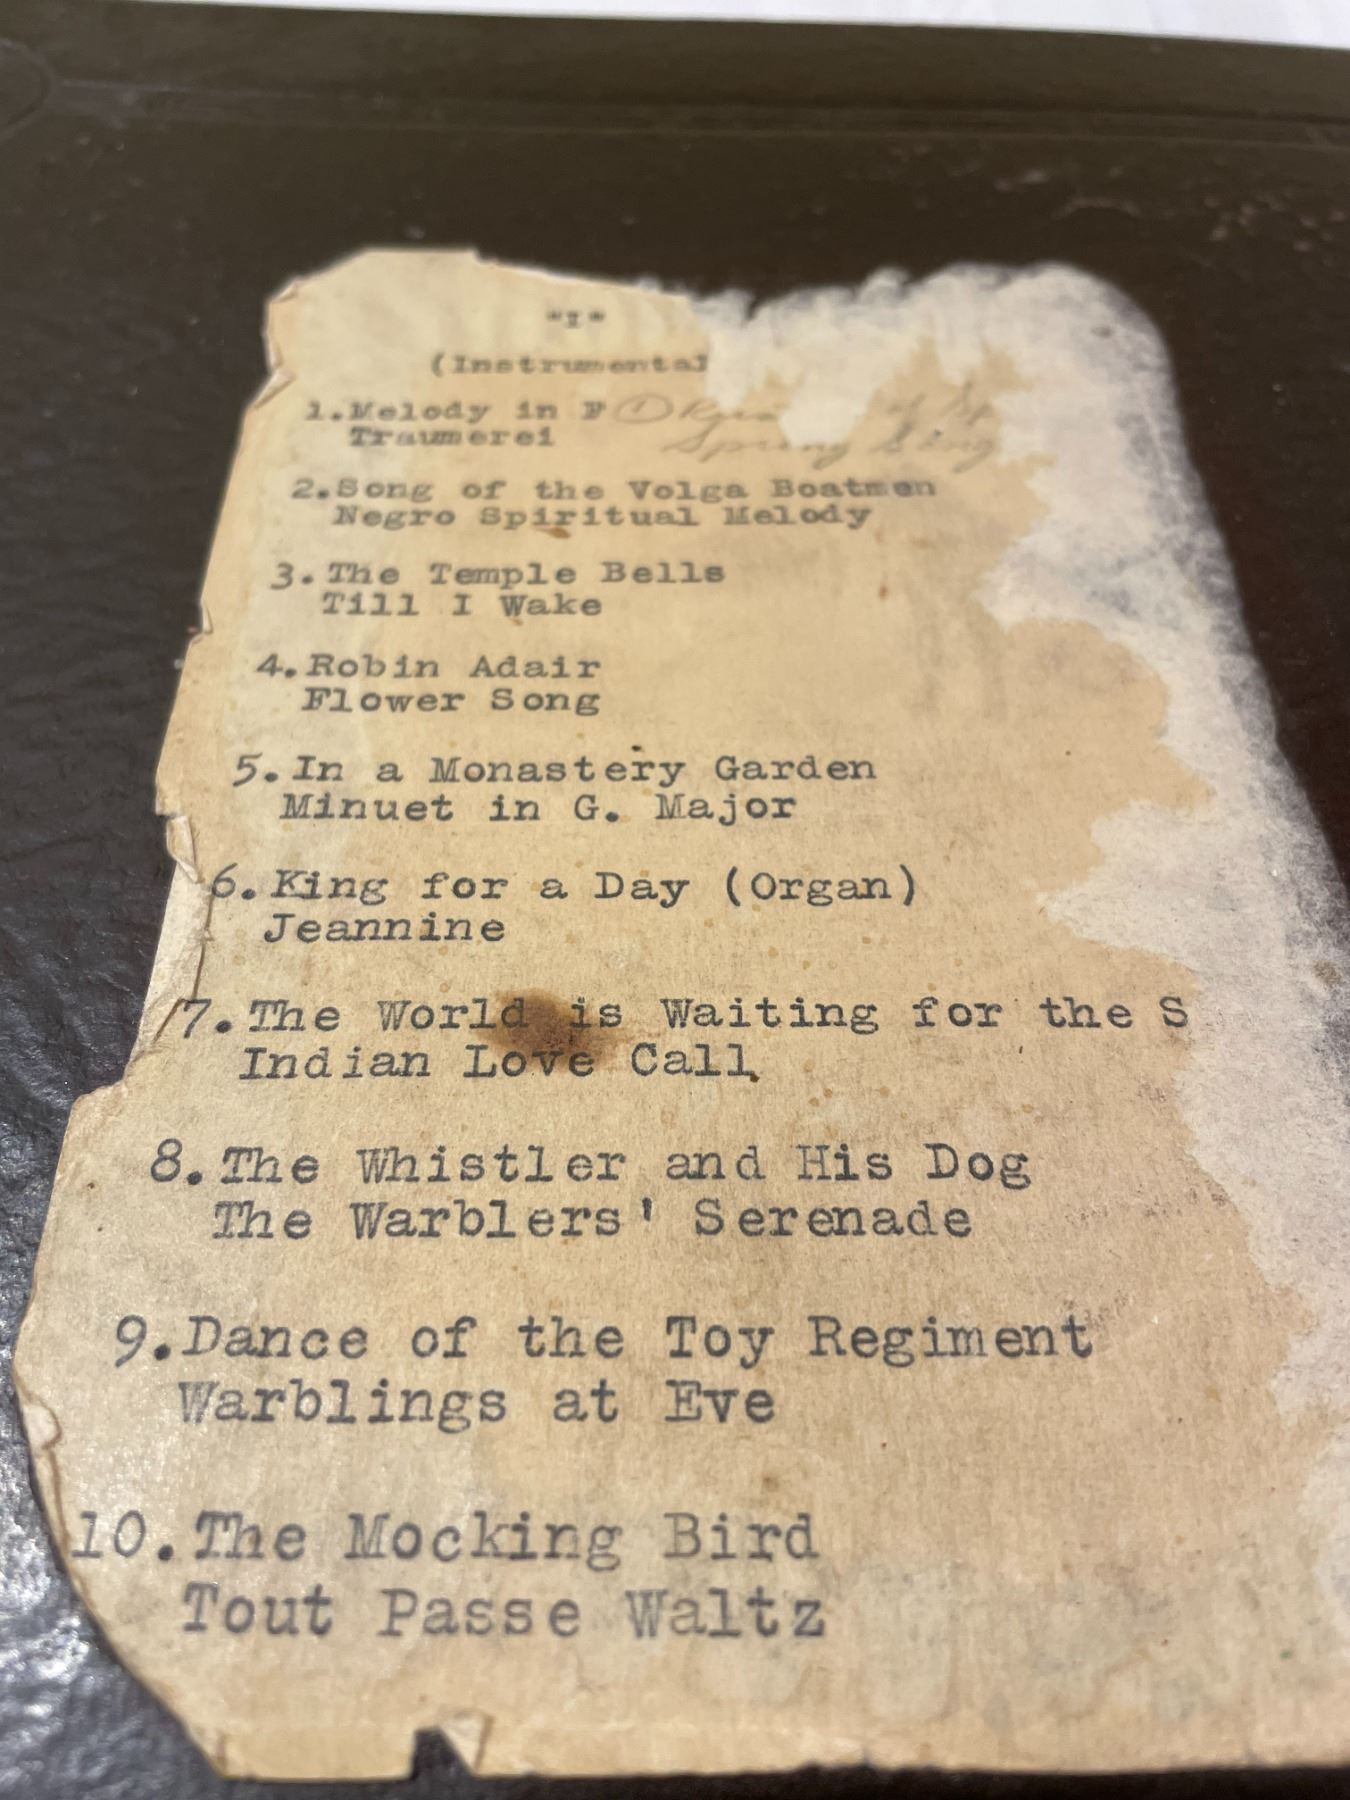 "I"
(Instrumental
1.Melody in F
Traumerei Spring Song
2.Song of the Volga Boatmen
Negro Spiritual Melody
3.The Temple Bells
Till I Wake
4.Robin Adair
Flower Song
5.In a Monastery Garden
Minuet in G. Major
6.King for a Day (Organ)
Jeannine
7.The World is Waiting for the S
Indian Love Call
8.The Whistler and His Dog
The Warblers' Serenade
9.Dance of the Toy Regiment
Warblings at Eve
10.The Mocking Bird
Tout Passe Waltz